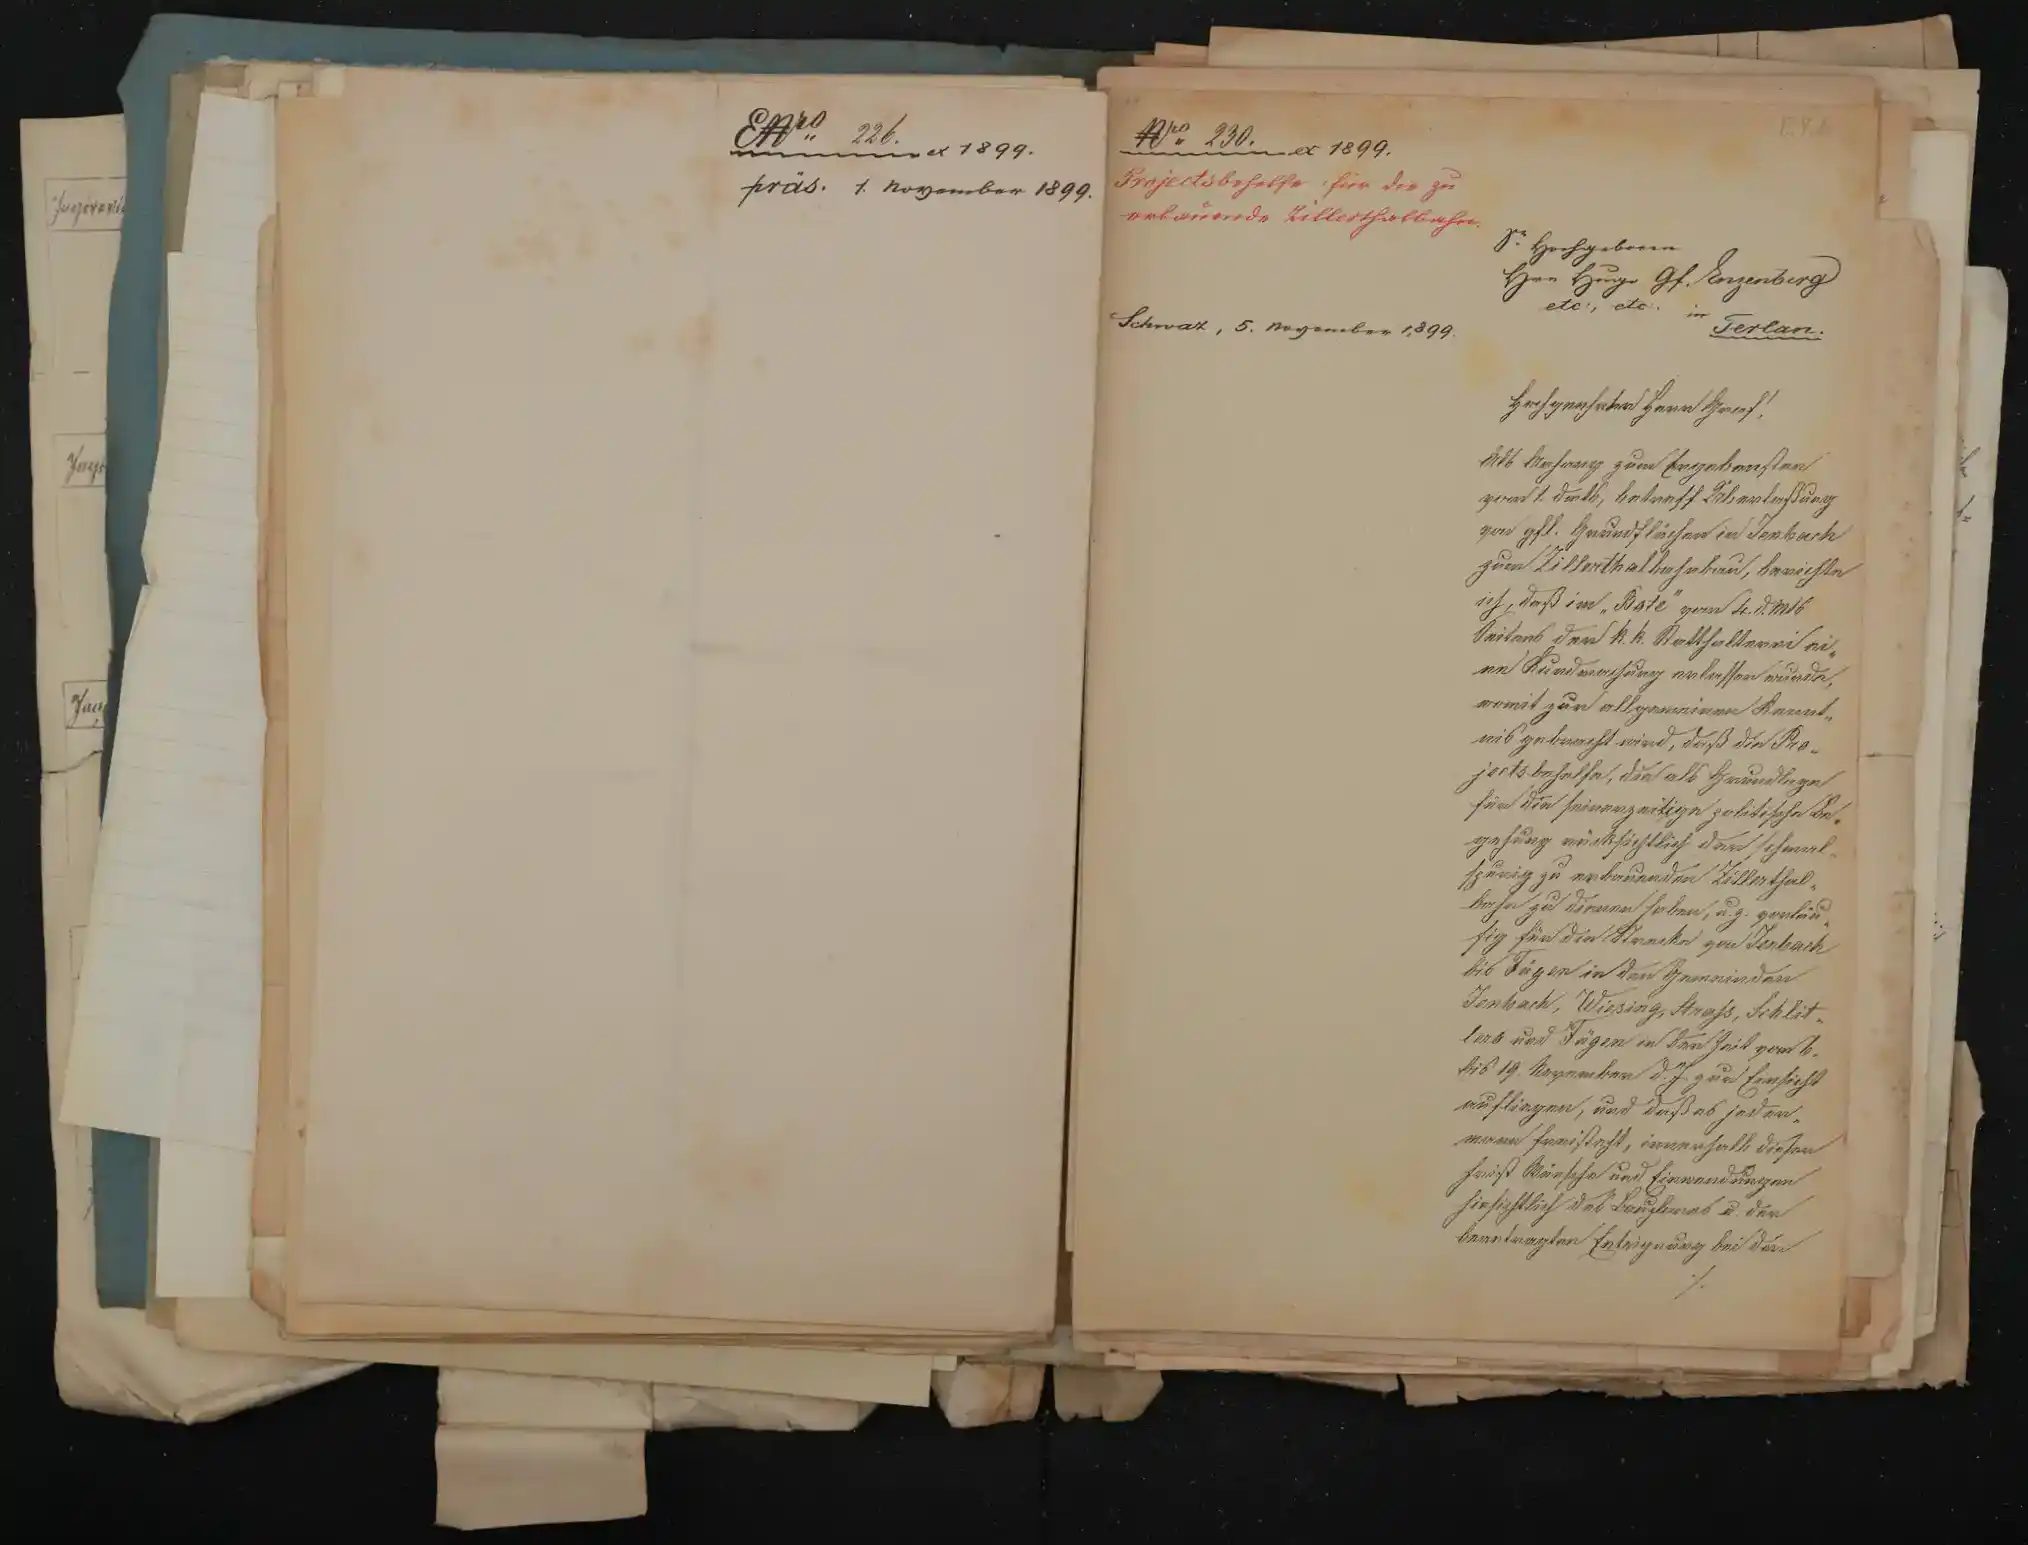 ENro 226. ex 1899.
präs. 1. November 1899.
Nro 230. ex 1899.
Projectsbehelfe für die zu
erbauende Zillerthalbahn.
Sr. Hochgeboren
Herrn Hugo Gf. Enzenberg
etc., etc. in
Terlan.
Schwaz, 5. November 1899.
Hochgeehrter Herr Graf!
Als Anhang zum Ergebensten
vom 1. dmts, betreff Überlassung
von gfl. Grundflächen in Jenbach
zum Zillerthalbahnbau, berichte
ich, daß im „Bote" vom 4. d. Mts
Seitens der k. k. Statthalterei ei-
ne Kundmachung erlassen wurde,
womit zur allgemeinen Kennt-
nis gebracht wird, daß die Pro-
jectsbehelfe, die als Grundlage
für die seinerzeitige politische Be-
gehung rücksichtlich der schmal-
spurig zu erbauenden Zillerthal-
bahn zu dienen haben, u. z. vorläu-
fig für die Strecke von Jenbach
bis Fügen in den Gemeinden
Jenbach, Wiesing, Strass, Schlit-
ters und Fügen in der Zeit vom 6.
bis 19. November d. J. zur Einsicht
aufliegen, und daß es jeder-
mann freisteht, innerhalb dieser
Frist Wünsche und Einwendungen
hinsichtlich des Bauplanes u. der
beantragten Enteignung bei der
./.